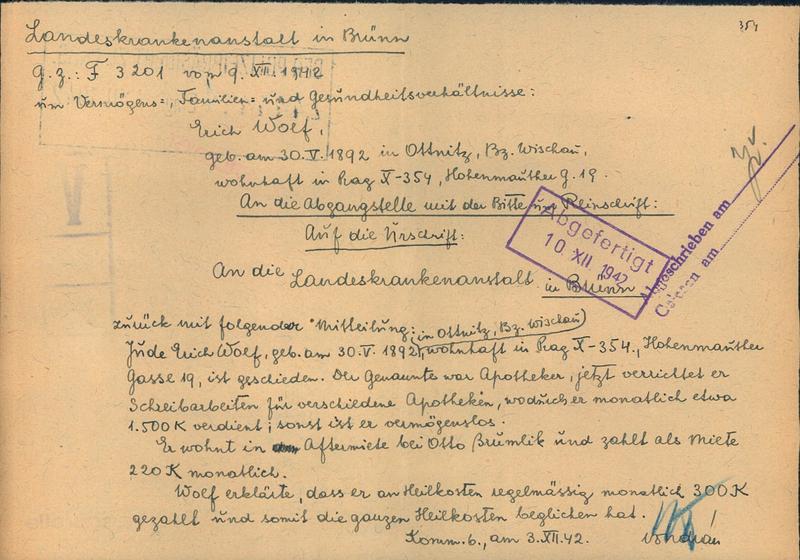 354
Landeskrankenanstalt in Brünn
G.z.: F 3201 vom 9. XII. 1942
um Vermögens-, Familien- und Gesundheitsverhältnisse:
Erich Wolf,
geb. am 30. V. 1892 in Ottnitz, Bz. Wischau,
wohnhaft in Prag X-354, Hohenmauther G. 19.
An die Abgangstelle mit der Bitte um Reinschrift:
Auf die Urschrift:
An die Landeskrankenanstalt in Brünn
Abgefertigt
10. XII. 1942
Abgeschrieben am
Gelesen am
zurück mit folgender Mitteilung:
in Ottnitz, Bz. Wischau
Jude Erich Wolf, geb. am 30. V. 1892, wohnhaft in Prag X-354., Hohenmauther
Gasse 19, ist geschieden. Der Genannte war Apotheker, jetzt verrichtet er
Schreibarbeiten für verschiedene Apotheken, wodurch er monatlich etwa
1.500 K verdient; sonst ist er vermögenslos.
Er wohnt in Aftermiete bei Otto Brumlik und zahlt als Miete
220 K monatlich.
Wolf erklärte, dass er an Heilkosten regelmässig monatlich 300 K
gezahlt und somit die ganzen Heilkosten beglichen hat.
Komm. 6., am 3. XII. 42.